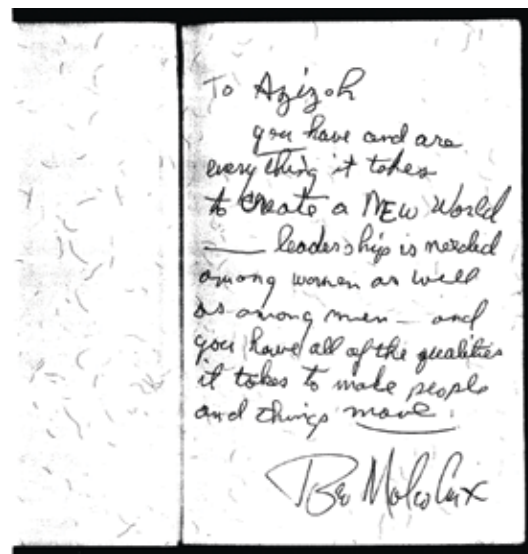 To Azizah
you have and are
everything it takes
to create a NEW World
—— leadership is needed
among women as well
as among men — and
you have all of the qualities
it takes to make people
and things move.
Bro Malcolm X